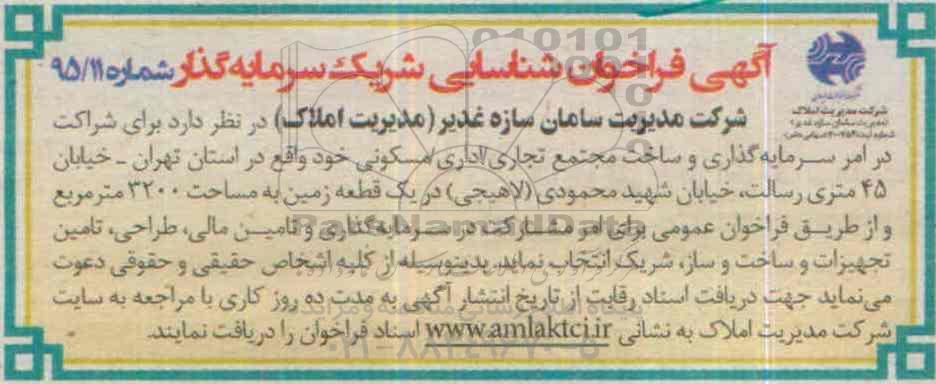 آگهی فراخوان شناسایی شریک سرمایه‌گذار شماره ۹۵/۱۱
شرکت مدیریت املاک
شرکت مدیریت سامان سازه غدیر (مدیریت املاک) در نظر دارد برای شراکت
در امر سرمایه‌گذاری و ساخت مجتمع تجاری اداری مسکونی خود واقع در استان تهران ـ خیابان
۴۵ متری رسالت، خیابان شهید محمودی (لاهیجی) در یک قطعه زمین به مساحت ۳۲۰۰ مترمربع
و از طریق فراخوان عمومی برای امر مشارکت در سرمایه‌گذاری و تامین مالی، طراحی، تامین
تجهیزات و ساخت و ساز، شریک انتخاب نماید. بدینوسیله از کلیه اشخاص حقیقی و حقوقی دعوت
می‌نماید جهت دریافت اسناد رقابت از تاریخ انتشار آگهی به مدت ده روز کاری با مراجعه به سایت
شرکت مدیریت املاک به نشانی www.amlaktci.ir اسناد فراخوان را دریافت نمایند.
ParsNamadData